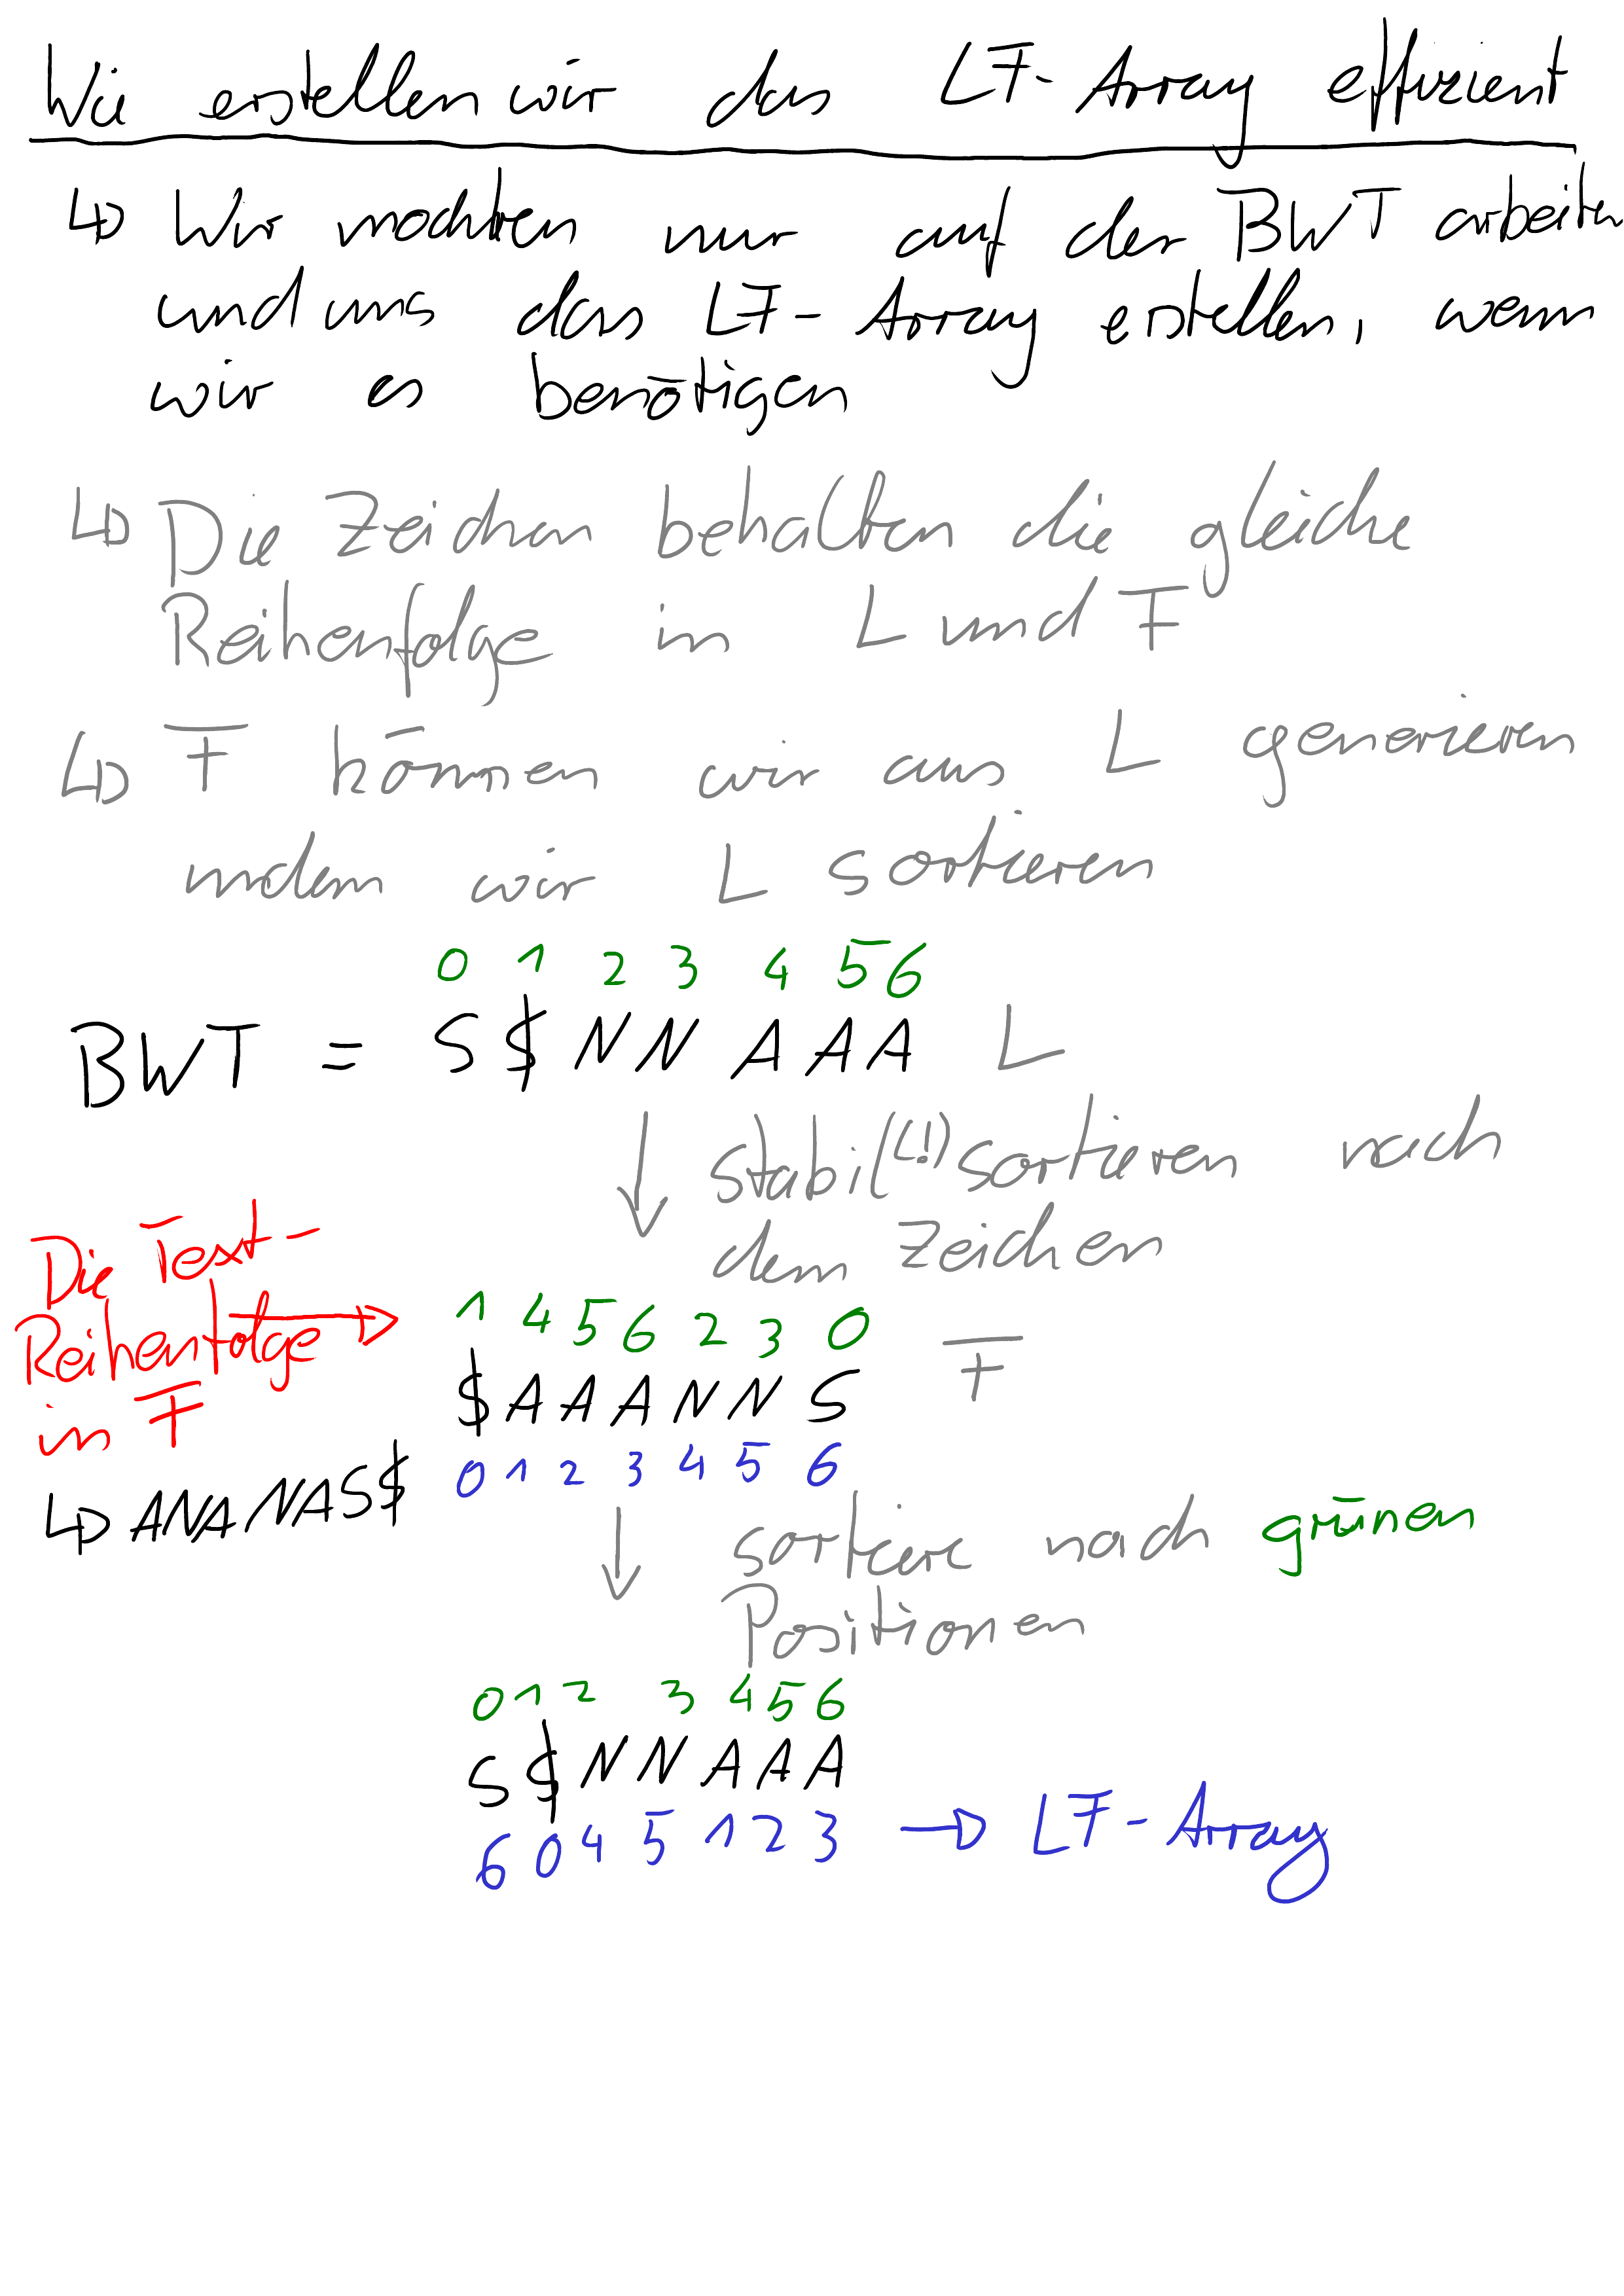 Wie erstellen wir das LF-Array effizient
↳ Wir möchten nur auf der BWT arbeiten
und uns das LF-Array erstellen, wenn
wir es benötigen
↳ Die Zeichen behalten die gleiche
Reihenfolge in L und F
↳ F können wir aus L generieren
indem wir L sortieren
0 1 2 3 4 5 6
BWT = S $ N N A A A L
↓ stabil(!) sortieren nach
dem Zeichen
Die Text-
Reihenfolge →
in F
↳ ANANAS$
1 4 5 6 2 3 0
$ A A A N N S F
0 1 2 3 4 5 6
↓ sortiere nach grünen
Positionen
0 1 2 3 4 5 6
S $ N N A A A
6 0 4 5 1 2 3 → LF-Array